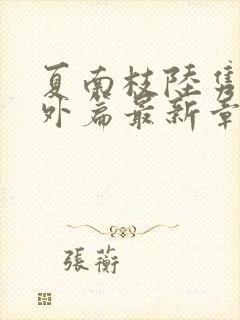 夏南枝陸隽
外篇最新章
張蘅